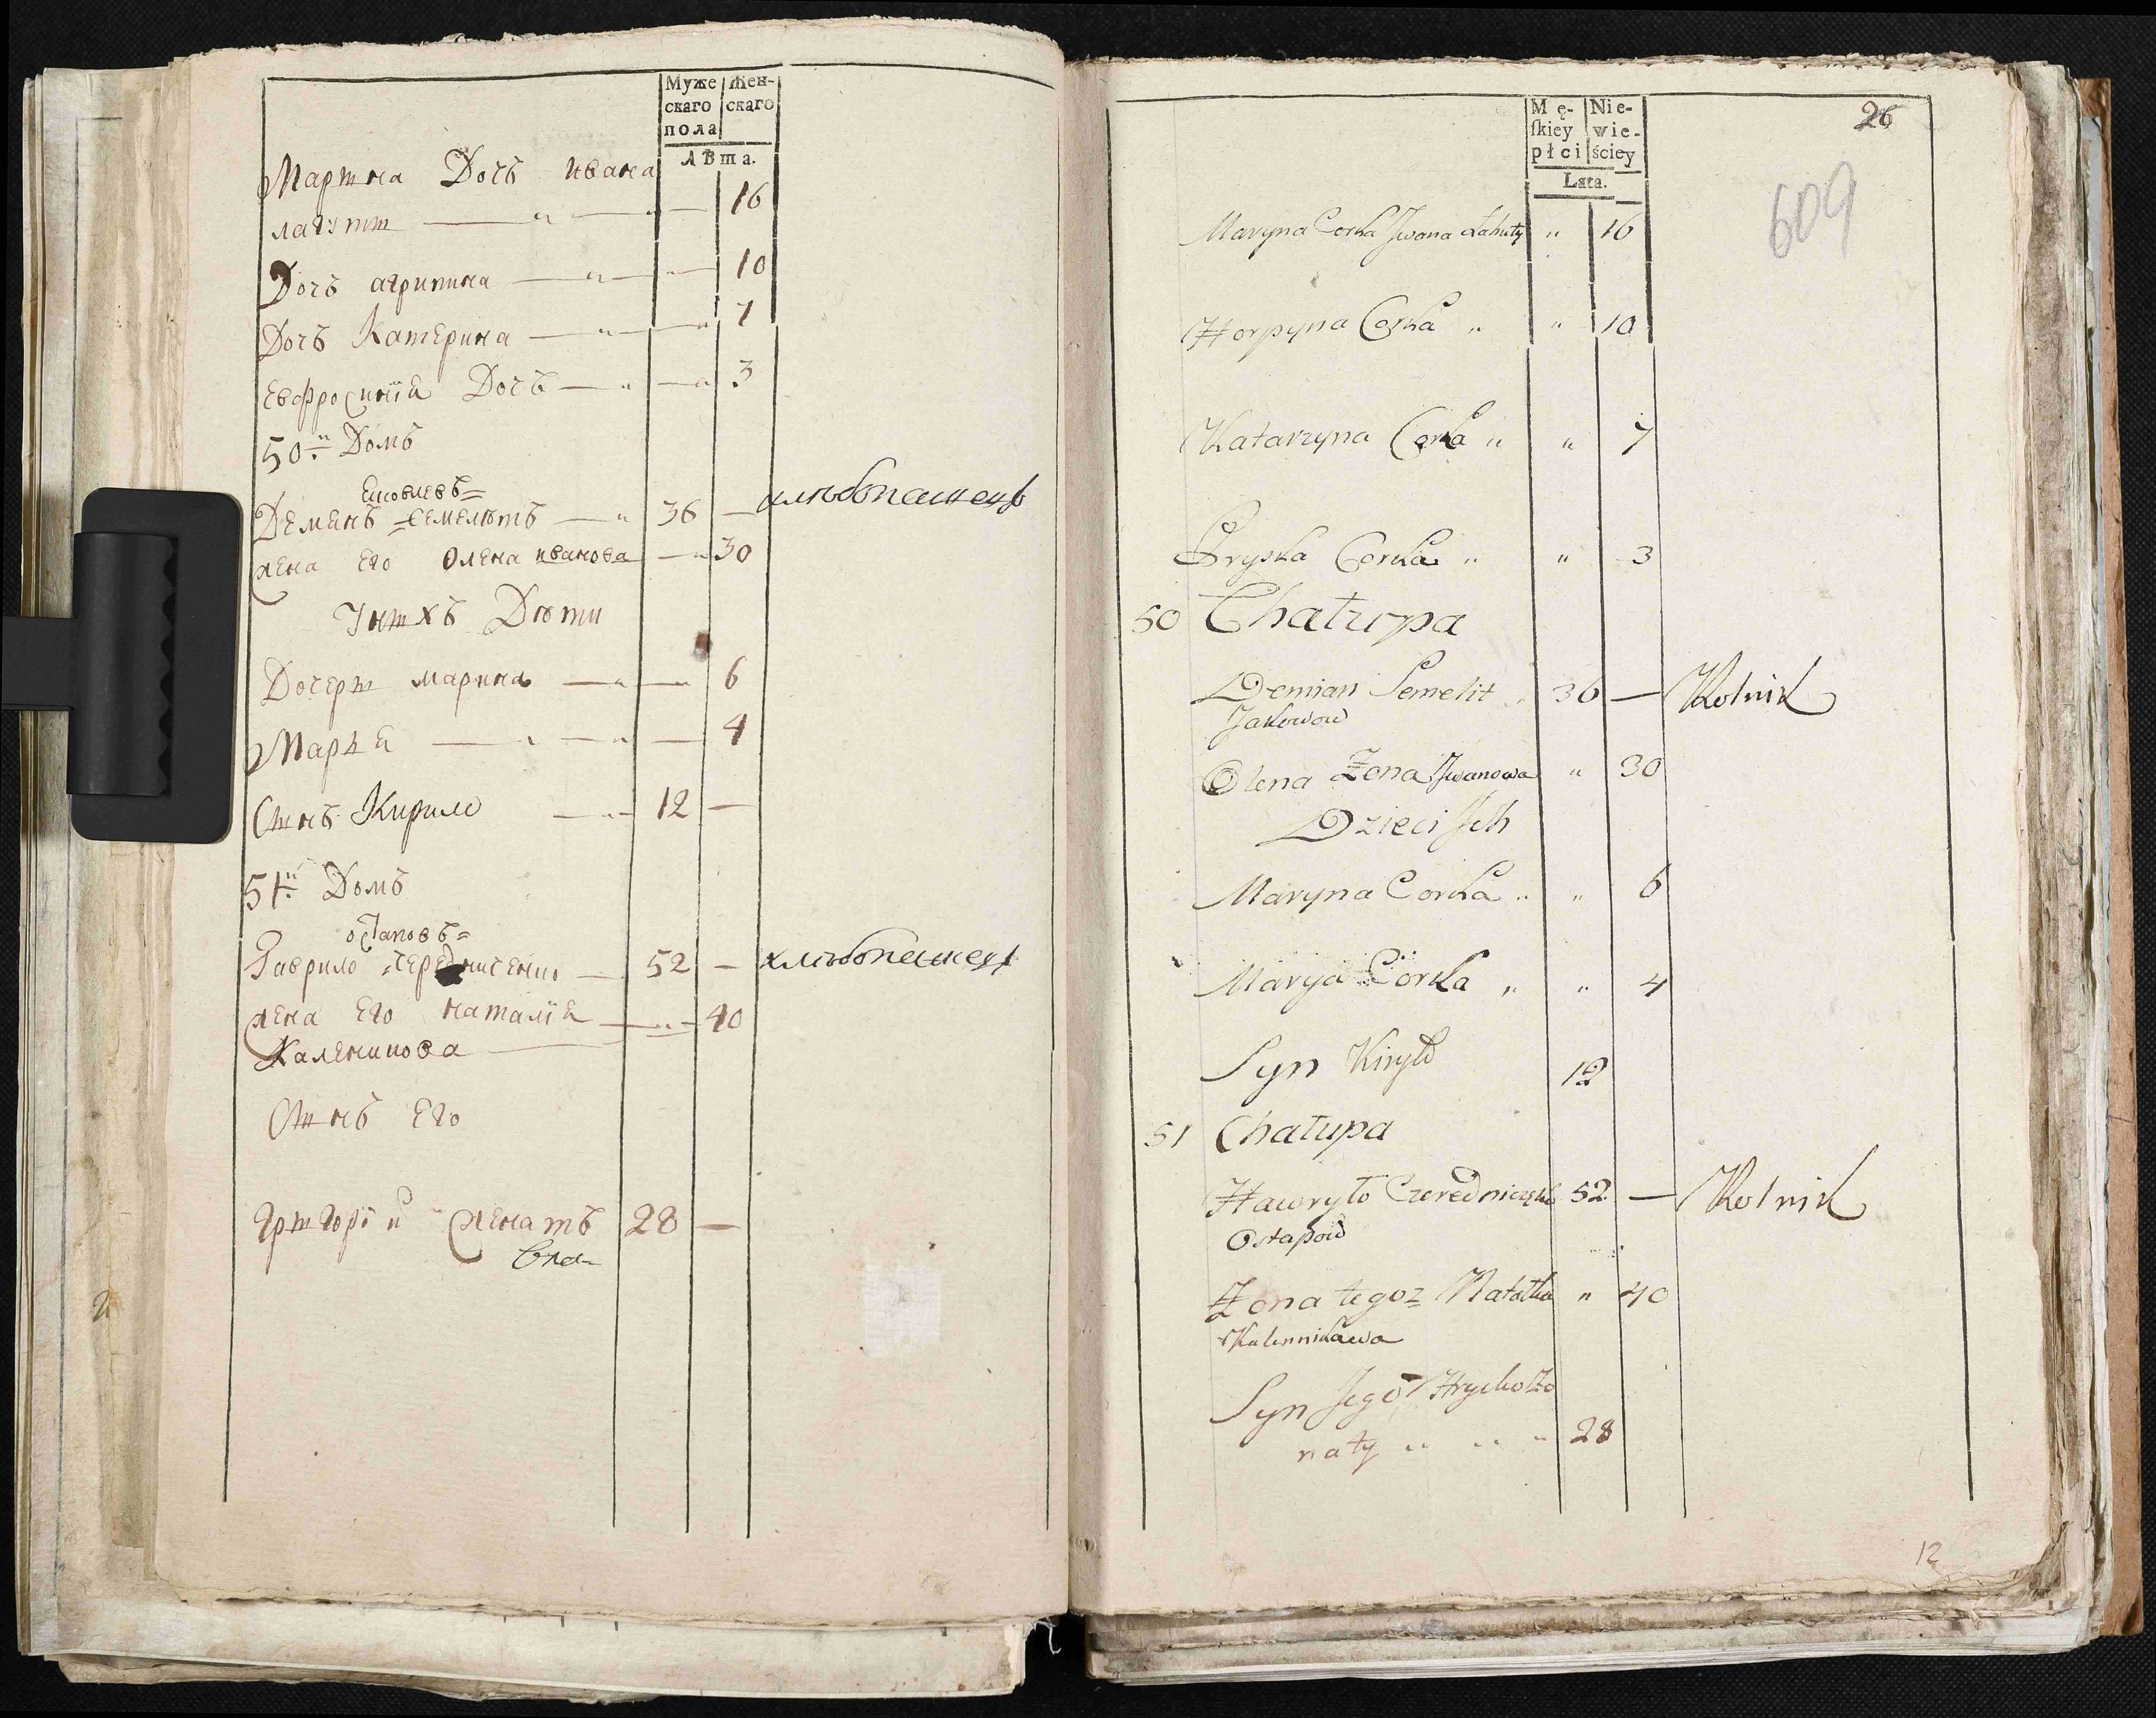 Муже Жен-
скаго скаго
пола
Лѣта.
Мартна Дочъ ивана
16
Дочъ агрипина — „ — „ — 10
Дочъ Катерина — „ — „ 7
Евфросинїя Дочъ — „ — „ 3
50й Домъ
Яковлевъ=
Деменъ =Семелѣтъ — „ 36 — хлѣбопашецъ
жена Его Олена иванова — „ 30
Унтхъ Дѣти
Дочерт марина — „ — „ 6
Мария — „ — „ — 4
Стнъ Кирило — „ — 12 —
51й Домъ
остаповъ=
Гаврило =Чередниченко — 52 — хлѣбопашецъ
жена Его наталїя — „ — 40
Каленикова
Стнъ Его
Гртгорїй женатъ 28 —
Мę- Nie-
ſkiey wie-
płci ściey
Lata.
26
609
Maryna Corka Jwana Łahuty „ 16
Horpyna Corka „ „ 10
Katarzyna Corka „ „ 7
Pryska Corka „ „ 3
50 Chałupa
Demian Semelit „ 36 — Rolnik
Jakowow
Olena Zona Jwanowa „ 30
Dzieci Jch
Maryna Corka „ „ 6
Marya Corka „ „ 4
Syn Kiryło 12
51 Chałupa
Hawryło Czeredniczenko 52 — Rolnik
Ostapow
Zona tegoz Natalka „ 40
Kalennikowa
Syn Jego Hrycko Zo
naty „ „ „ 28
12